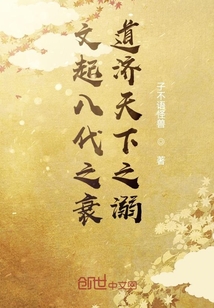 道济天下之溺
文起八代之衰
子不语怪兽 ◎ 著
创世中文网